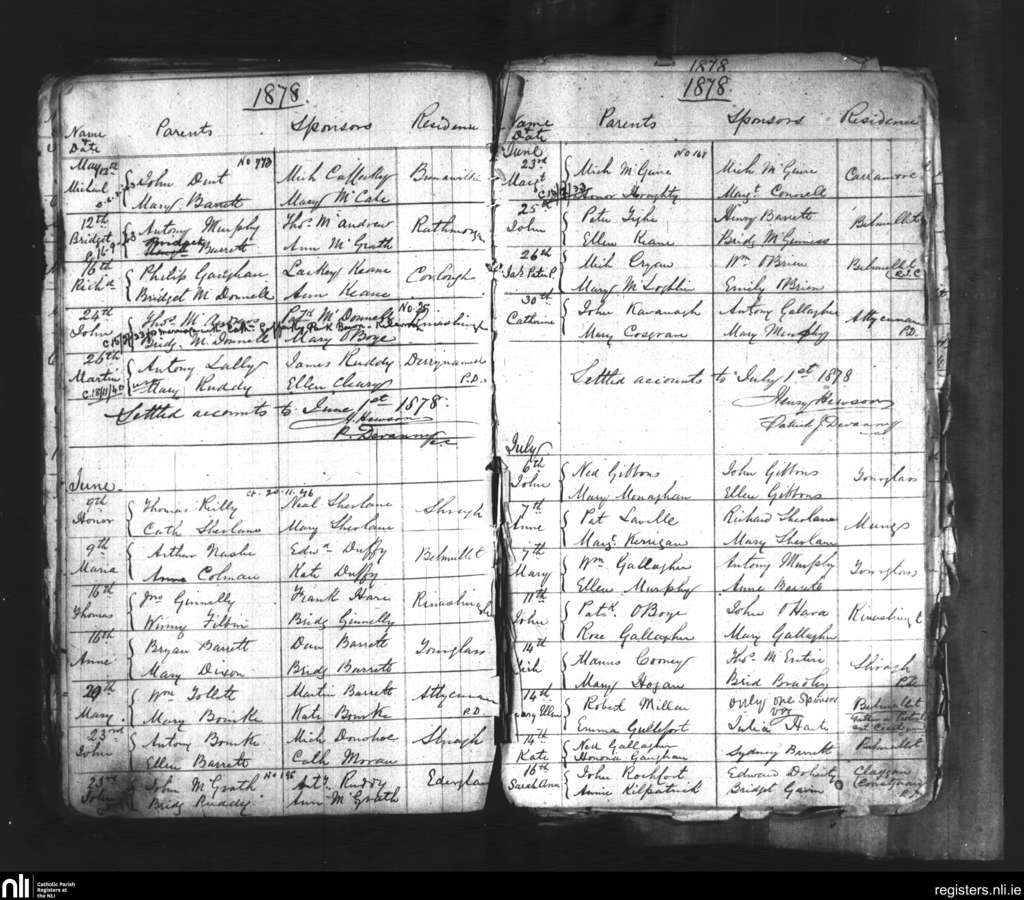 1878.
Name & Date Parents Sponsors Residence
May 12th No 770
Michael John Dent Mich Cafferkey
Mary Barrett Mary McCabe
12th Antony Murphy Thos. McAndrew Rathmorgan
Bridget Bridget Barrett Ann McGrath
16th Philip Gaughan Lackey Keane Conlough
Richd Bridget McDonnell Ann Keane
24th Thos. McDonnell No 25
John Bridg. McDonnell Mary O'Boye
26th Antony Lally James Ruddy Derrynameel
Martin Mary Ruddy Ellen Cleary P.D.
C. 18/11/40
Settled accounts to June 1st 1878.
J. Hewson
P. Devanny
June
Ct. 20-11-46
9th Thomas Reilly Neal Sherlane Shragh
Honor Cath Sherlane Mary Sherlane
9th Arthur Nashe Edwd Duffy Belmullet
Maria Anne Colman Kate Duffy
16th Jno Ginnelly Frank Hare
Thomas Winny Filbin Bridg Ginnelly
16th Bryan Barrett Dan Barrett Tonnglass
Anne Mary Dixon Bridg Barrett
20th Wm Follett Martin Barrett Attyconnan
Mary. Mary Bourke Kate Bourke P.D
23rd Antony Bourke Mich Donohoe Shragh
John Ellen Barrett Cath Moran
23rd John McGrath No 146 Anty Ruddy Ederglan
John Bridg Ruddy Ann McGrath
1878
1878.
Name & Date Parents Sponsors Residence
June
23rd No 168
Margt Mich McGuire Mich McGuire Carramore
Honor Houghty Margt. Connell
25th Peter Tighe Henry Barrett Belmullet
John Ellen Keane Bridg McGuiness
26th Mich Cryan Wm O'Brien Belmullet
Jas. Peter P. Mary McLoghlin Emily O'Brien R.I.C
30th John Kavanagh Antony Gallagher Attyconnan
Catherine Mary Cosgrave Mary Murphy P.D.
Settled accounts to July 1st 1878
Henry Hewson
Patrick J Devanny
July
6th Ned Gibbons John Gibbons Tonnglass
John Mary Monaghan Ellen Gibbons
7th Pat Lavelle Richard Sherlane Mungs
Anne Margt. Kerrigan Mary Sherlane
7th Wm. Gallagher Antony Murphy Tonnglass
Mary Ellen Murphy Anne Barrett
11th Patk. O'Boye John O'Hara
John Rose Gallagher Mary Gallagher
14th Manus Cooney Thos. McEntire Shragh
Mich Mary Hogan Brid Bradley P.D.
14th Robert Millar only one Sponsor Belmullet
Mary Ellen Emma Gullefort Julia Hart
14th Ned Gallagher Sydney Barrett Belmullet
Kate Honoria Gaughan
16th John Rochfort Edward Doherty Claggan
Sarah Ann Annie Kilpatrick Bridget Gavin P.D.
nli
Catholic Parish
Registers at
the NLI
registers.nli.ie